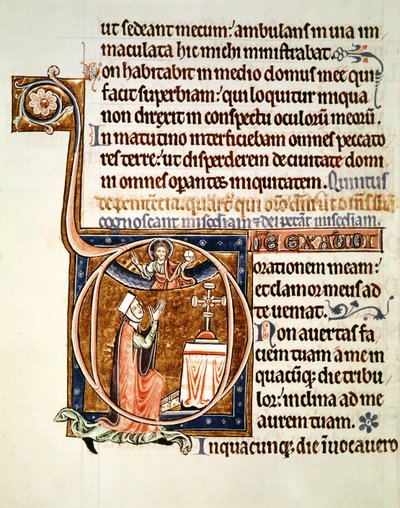 ut sedeant mecum: ambulans in uia im
maculata hic michi ministrabat.
Non habitabit in medio domus mee qui
facit superbiam: qui loquitur iniqua
non direxit in conspectu oculorū meorū.
In matutino interficiebam omnes peccato
res terre: ut disperderem de ciuitate domī
in omnes operantes iniquitatem. Quintus
de penitēcia.
cognoscant
DNE EXAUDI
orationem meam:
et clamor meus ad
te ueniat.
Non auertas fa
ciem tuam a me in
quacūq; die tribu
lor: inclina ad me
aurem tuam.
In quacunq; die īuocauero